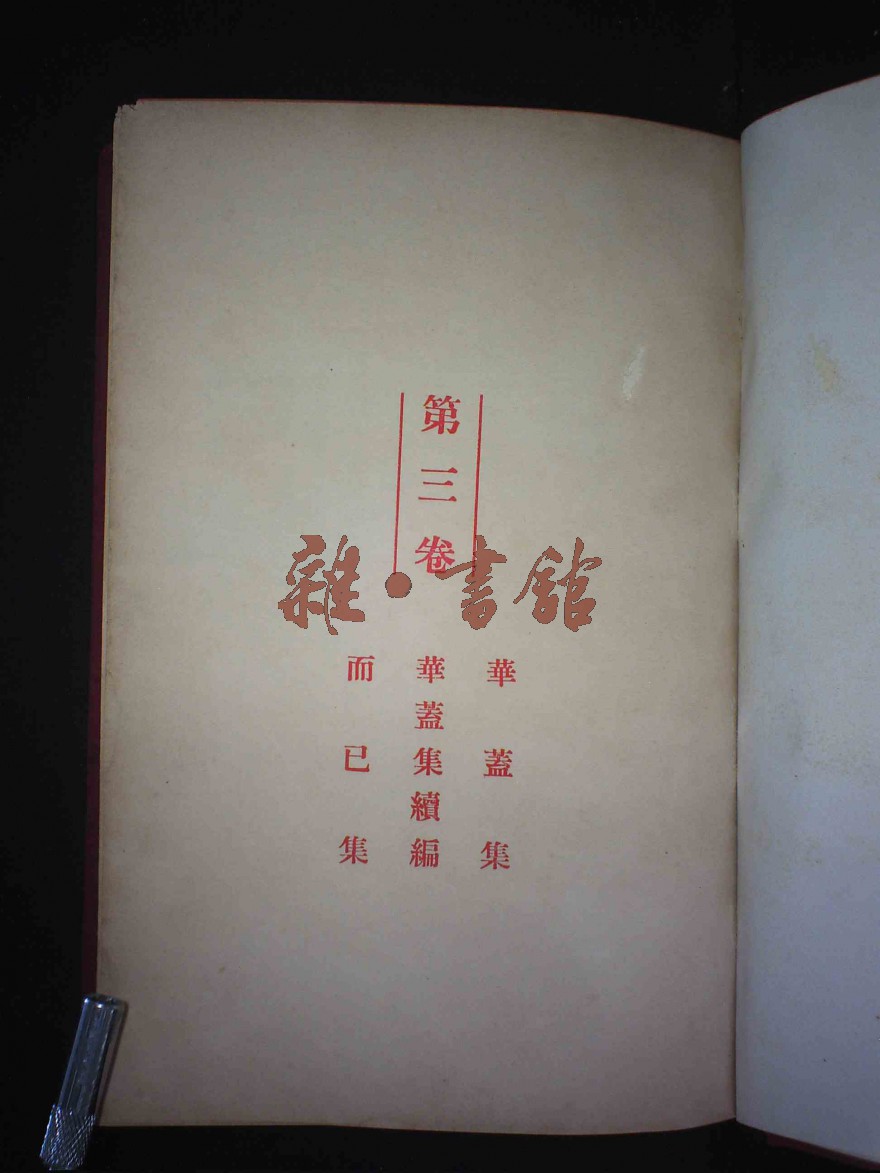 第三卷
雜·書館
華蓋集
華蓋集續編
而已集